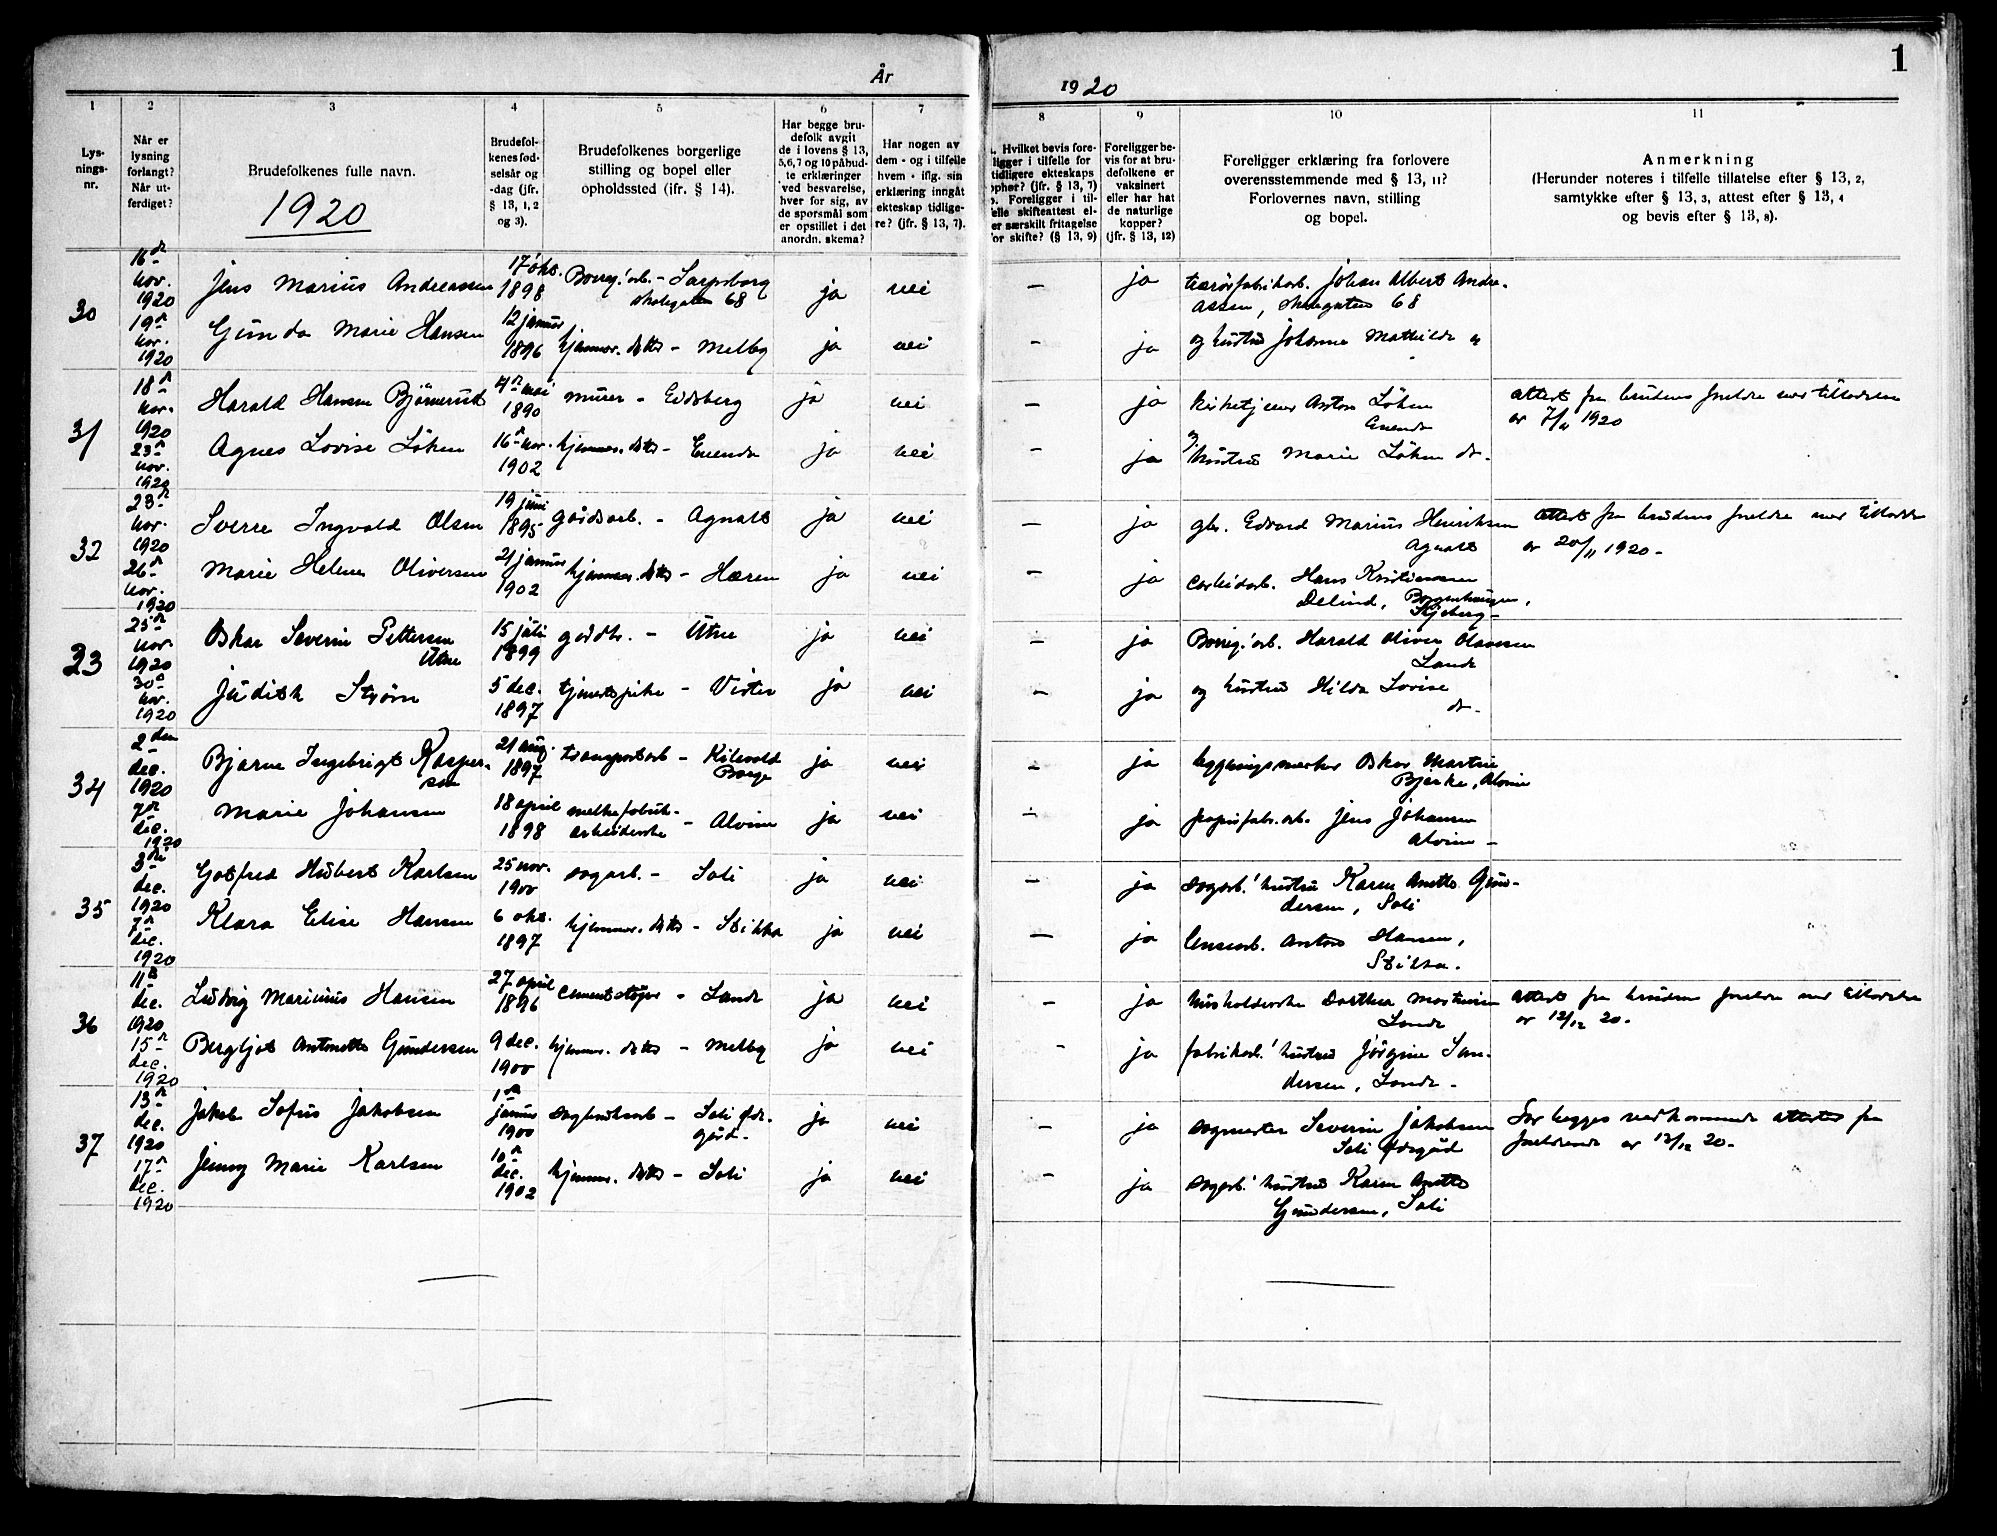 År
1920
1
1
2
3
4
5
6
7
8
9
10
11
Lys-
nings-
nr.
Når er
lysning
forlangt?
Når ut-
ferdiget?
Brudefolkenes fulle navn.
1920
Brudefol-
kenes fød-
selsår og
-dag (jfr.
§ 13, 1, 2
og 3).
Brudefolkenes borgerlige
stilling og bopel eller
opholdssted (jfr. § 14).
Har begge bru-
defolk avgit
de i lovens § 13,
5, 6, 7 og 10 påbud-
te erklæringer
ved besvarelse,
hver for sig, av
de spørsmål som
er opstillet i det
anordn. skema?
Har nogen av
dem - og i tilfelle
hvem - iflg. sin
erklæring inngåt
ekteskap tidlige-
re? (jfr. § 13, 7).
Hvilket bevis fore-
ligger i tilfelle for
tidligere ekteskaps
ophør? (jfr. § 13, 7)
Foreligger i til-
felle skifteattest el-
er særskilt fritagelse
for skifte? (§ 13, 9)
Foreligger be-
vis for at bru-
defolkene er
vaksinert
eller har hat
de naturlige
kopper?
(jfr. § 13, 12)
Foreligger erklæring fra forlovere
overensstemmende med § 13, 11?
Forlovernes navn, stilling
og bopel.
Anmerkning
(Herunder noteres i tilfelle tillatelse efter § 13, 2,
samtykke efter § 13, 3, attest efter § 13, 4
og bevis efter § 13, 8).
30
16de nov. 1920
19de nov. 1920
Jens Marius Andreassen
17 okt. 1898
Borreg. arb. - Sarpsborg
Skolegaten 68
ja
nei
—
ja
Johan Albert Andre-
assen, Skolegaten 68
Gunda Marie Hansen
12 januar 1896
hjemmev. datter - Melby
ja
nei
ja
og hustru Johanne Mathilde
31
18de nov. 1920
23de nov. 1920
Harald Hansen Bjørnerud
4de mai 1890
murer - Eidsberg
ja
nei
—
ja
kirketjener Anton Løken
Attest fra brudens foreldre med tilladelse
av 1920
Agnes Lovise Løken
16de nov. 1902
hjemmev. datter -
ja
nei
—
ja
og hustru Marie Løken do.
32
23de nov. 1920
26de nov. 1920
Sverre Ingvald Olsen
19 juni 1895
gårdsarb. - Agnalt
ja
nei
—
ja
gbr. Edvard Marius Henriksen
Agnalt
Attest fra brudens foreldre med tilladelse
av 20/11 1920 -
Marie Helene Oliversen
21 januar 1902
hjemmev. datter - Hæren
ja
nei
—
ja
carbidarb. Hans Kristiansen
Delind, Borgenhaugen,
Skjeberg -
33
25de nov. 1920
30de nov. 1920
Oskar Severin Pettersen
Utne
15 juli 1899
- Utne
ja
nei
—
ja
Borreg. arb. Harald Oliver Olavesen
Lande
Judith Strøm
5 dec. 1897
tjenestepike - Vister
ja
nei
—
ja
og hustru Hilda Lovise
do -
34
2den dec. 1920
7de dec. 1920
Bjarne Ingebrigt Kasper-
sen
21 aug. 1897
transportarb - Kilevold
Borge
ja
nei
—
ja
bygningsmester Oskar Martin
Bjerke, Alvim
Marie Johansen
18 april 1898
melkefabrik-
arbeiderske - Alvim
ja
nei
—
ja
papirfabr. arb. Jens Johansen
Alvim -
35
3die dec. 1920
7de dec. 1920
Gotfred Hubert Karlsen
25 nov. 1900
sagarb. - Soli
ja
nei
—
ja
sagarb.' hustru Karen Anette Gun-
dersen, Soli
Klara Elise Hansen
6 okt. 1897
hjemmev. datter - Stikka
ja
nei
—
ja
lensearb. Anton Hansen,
Stikka.
36
11te dec. 1920
15de dec. 1920
Ludvig Marinius Hansen
27 april 1896
cementstøper - Lande
ja
nei
—
ja
husholderske Dorthea Martinsen
Lande
Attest fra brudens foreldre med tilladelse
av 12/12 20 -
Bergljot Antonette Gundersen
9 dec. 1900
hjemmev. datter - Melby
ja
nei
-
ja
fabrikarb.' hustru Jørgine Gun-
dersen, Lande -
37
13de dec. 1920
17de dec. 1920
Jakob Sofus Jakobsen
1ste januar 1900
sagbruksarb - Soli Øde-
gård -
ja
nei
-
ja
sagmester Severin Jakobsen
Soli Ødegård
For begges vedkommende attester fra
foreldrene av 12/12 20 -
Jenny Marie Karlsen
10de dec. 1902
hjemmev. datter - Soli
ja
nei
—
ja
sagarb.' hustru Karen Anette
Gundersen, Soli